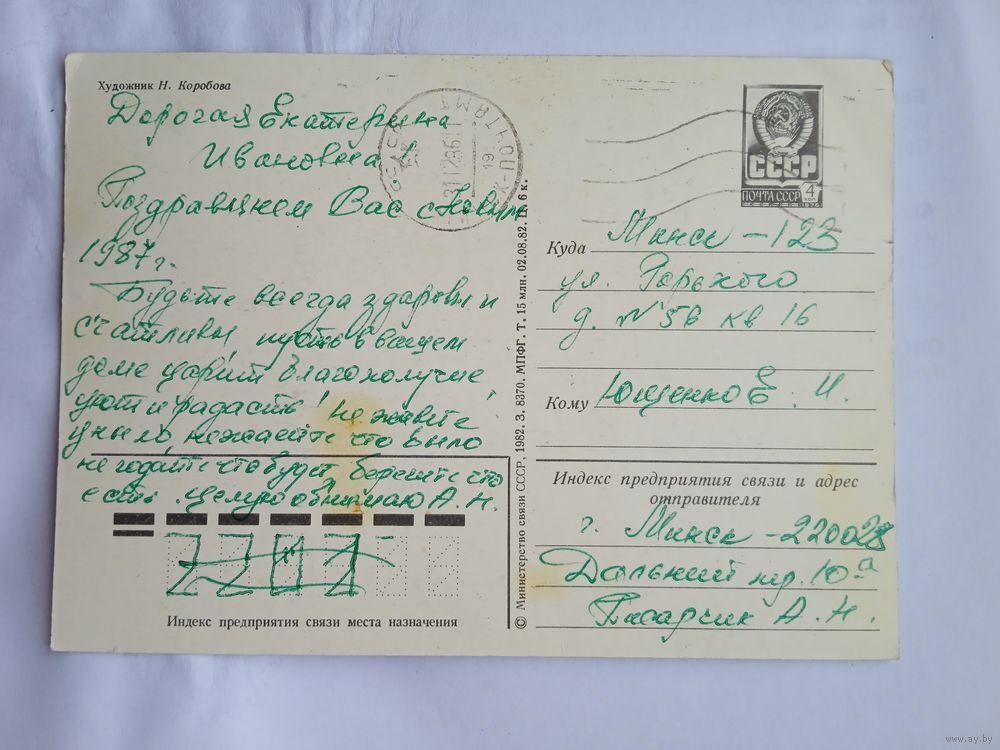 Художник Н. Коробова
Дорогая Екатерина
Ивановна
Поздравляем Вас с Новым
1987 г.
Будьте всегда здоровы и
счатливы пусть в вашем
доме царит благополучие
уют и радасть! не живите
уныло, не жалейте что было
не годайте что будет, берегите что
есть. целую обнимаю А. Н.
Индекс предприятия связи места назначения
© Министерство связи СССР, 1982. З. 8370. МПФГ. Т. 15 млн. 02.08.82. Ц. 6 к.
31 12 86
СССР
ПОЧТА СССР 4 КОП
1976
Куда Минск - 123
ул. Горького
д. № 5в кв 16
Кому Ющенко Е. И.
Индекс предприятия связи и адрес
отправителя
г. Минск - 220028
Дальний пд. 10а
Писарчик А. Н.
www.ay.by